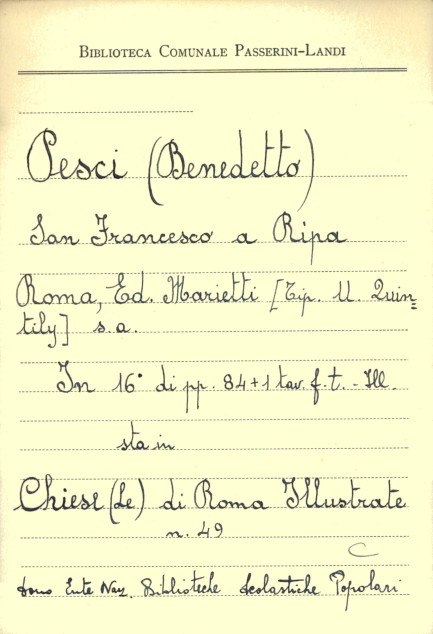 BIBLIOTECA COMUNALE PASSERINI-LANDI
Pesci (Benedetto)
San Francesco a Ripa
Roma, Ed. Marietti [Tip. U. Quin=
tily] s.a.
In 16° di pp. 84+1 tav. f. t. - Ill.
sta in
Chiese (Le) di Roma Illustrate
n. 49
C
dono Ente Naz. Biblioteche Scolastiche Popolari